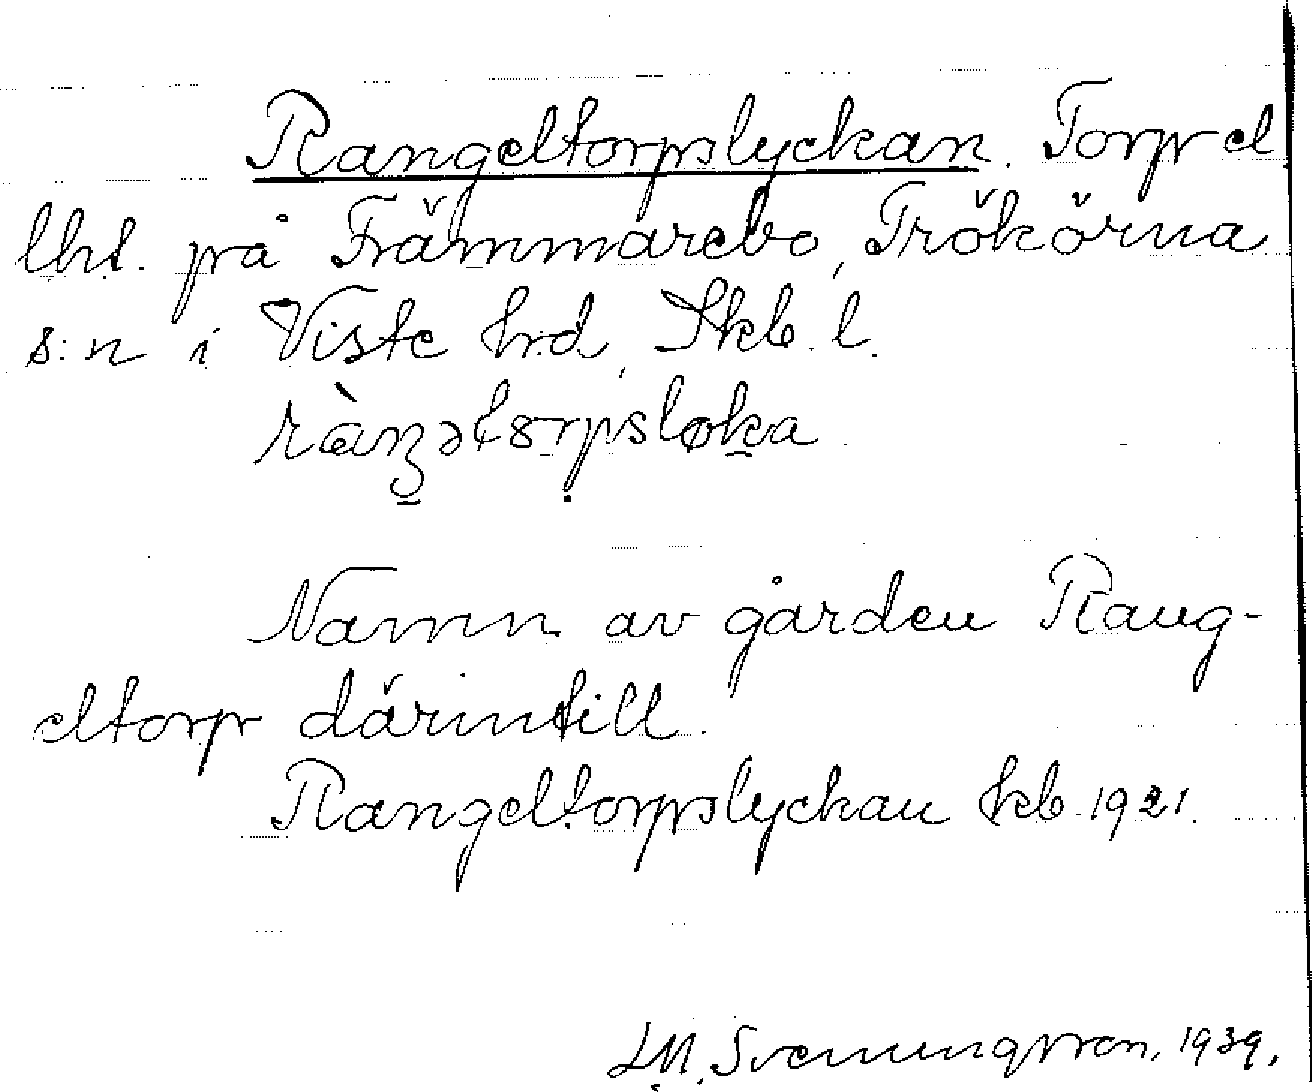 Rangeltorpslyckan. Torp el
lht. på Främmarebo, Trökörna
s:n i Viste hrd, Skb. l.
Namn av gården Rang-
eltorp därintill.
Rangeltorpslyckan kb 1921.
L.M. Svenungsson. 1939.